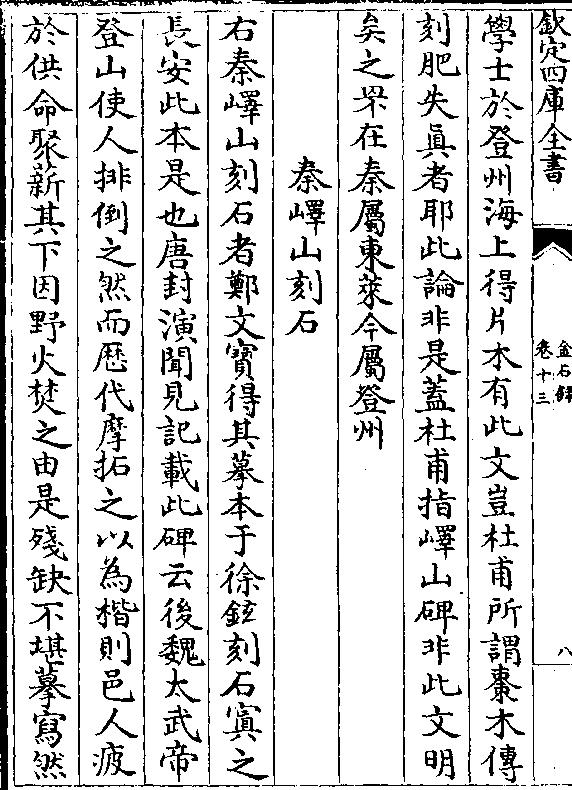 欽定四庫全書
金石録
卷十三
八
學士於登州海上得片木有此文豈杜甫所謂棗木傳
刻肥失眞者耶此論非是蓋杜甫指嶧山碑非此文明
矣之罘在秦屬東萊今屬登州
秦嶧山刻石
右秦嶧山刻石者鄭文寳得其摹本于徐鉉刻石寘之
長安此本是也唐封演聞見記載此碑云後魏太武帝
登山使人排倒之然而歴代摩拓之以為楷則邑人疲
於供命聚新其下因野火焚之由是殘缺不堪摹寫然